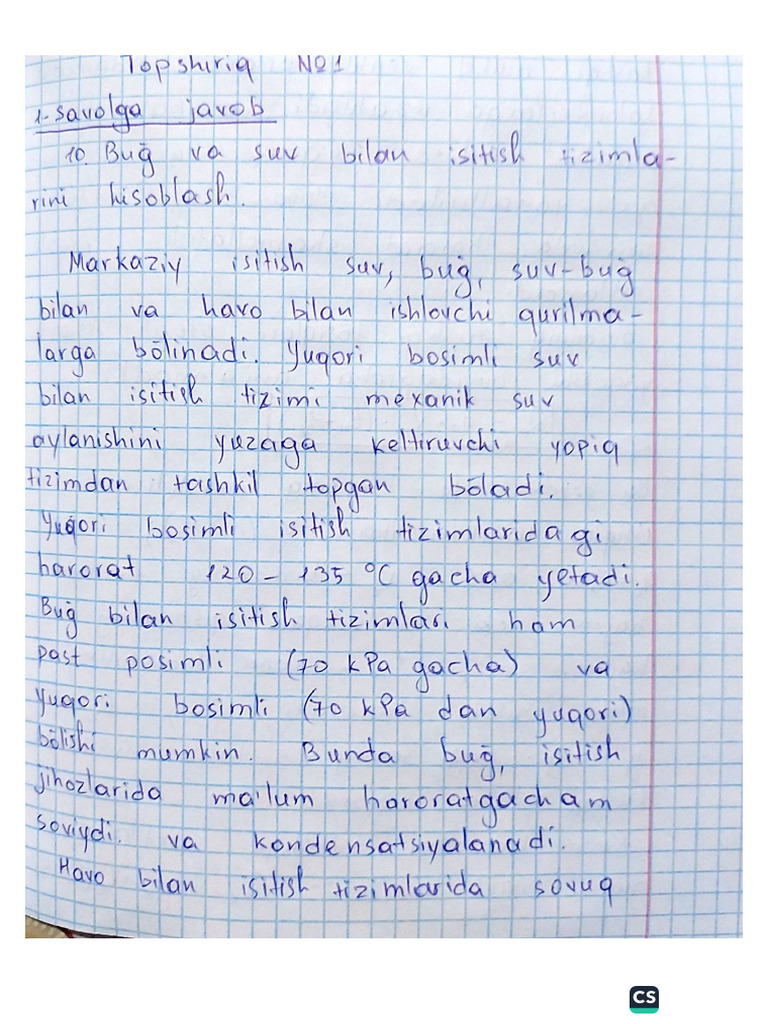 Topshiriq №1
1-savolga javob
10. Buğ va suv bilan isitish tizimla-
rini hisoblash.
Markaziy isitish suv, buğ, suv-buğ
bilan va havo bilan ishlovchi qurilma-
larga bōlinadi. Yuqori bosimli suv
bilan isitish tizimi mexanik suv
aylanishini yuzaga keltiruvchi yopiq
tizimdan tashkil topgan bōladi.
Yuqori bosimli isitish tizimlaridagi
harorat 120 - 135 °C gacha yetadi.
Buğ bilan isitish tizimlari ham
past posimli (70 kPa gacha) va
yuqori bosimli (70 kPa dan yuqori)
bōlishi mumkin. Bunda buğ, isitish
jihozlarida ma'lum haroratgacham
soviydi. va kondensatsiyalanadi.
Havo bilan isitish tizimlarida sovuq
CS